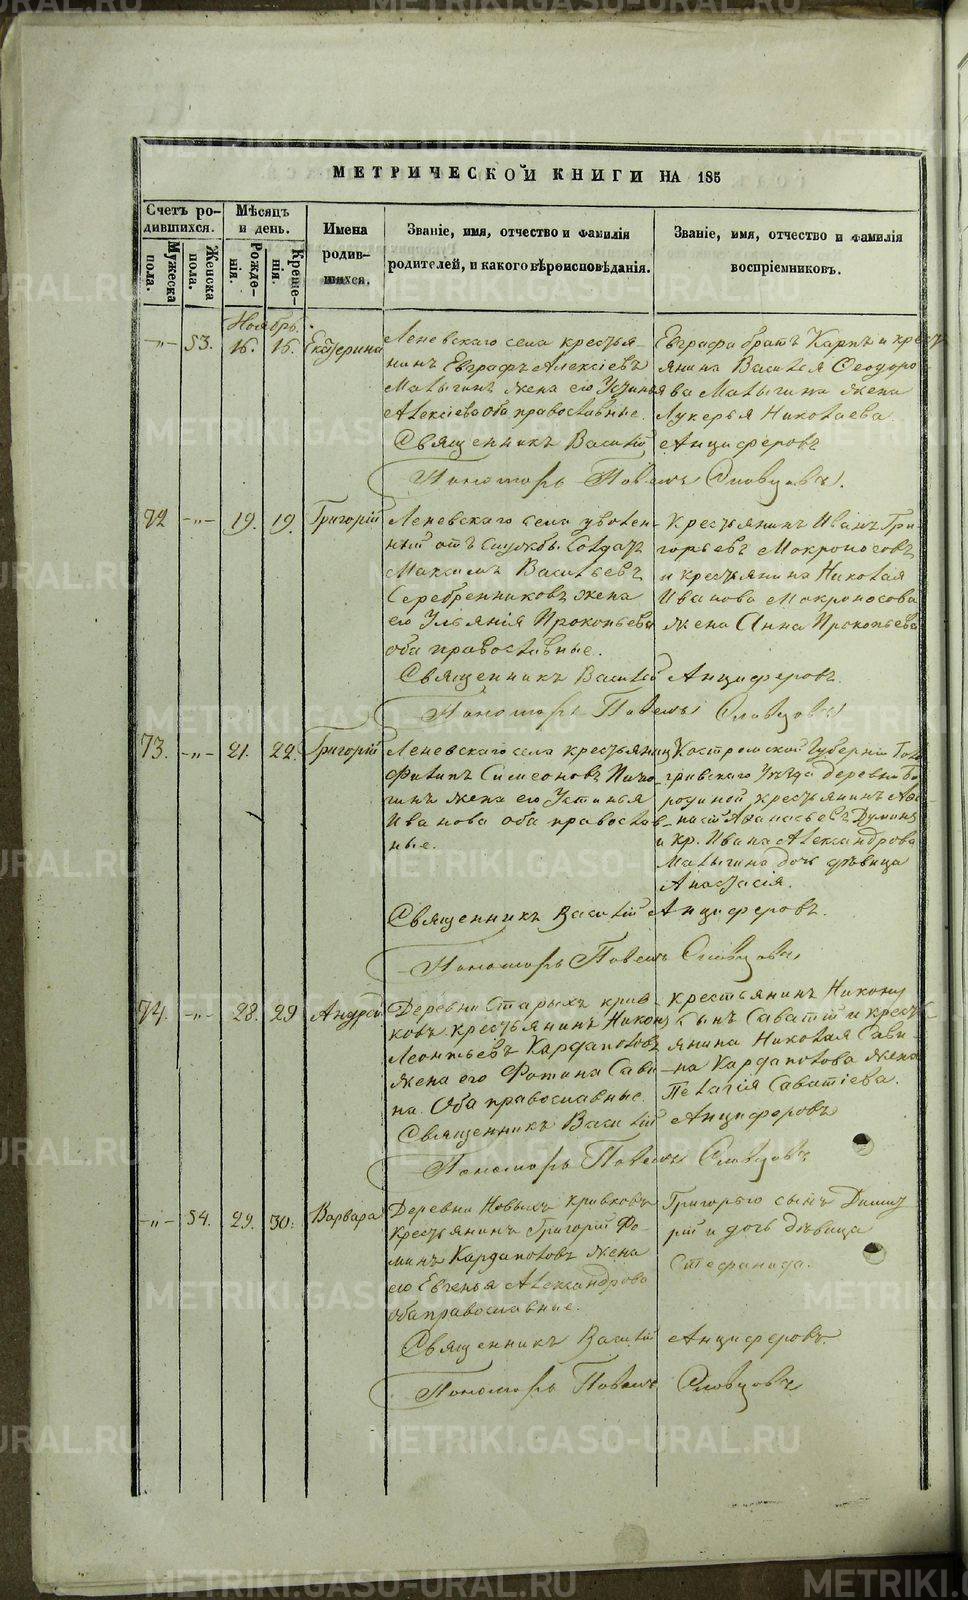 МЕТРИЧЕСКОЙ КНИГИ НА 185
Счетъ ро-
дившихся.
Мужеска
пола.
Женска
пола.
Мѣсяцъ
и день.
Рожде-
нія.
Креще-
нія.
Имена
родив-
шихся.
Званіе, имя, отчество и фамилія
родителей, и какого вѣроисповѣданія.
Званіе, имя, отчество и фамилія
воспріемниковъ.
Ноябрь.
-„- 53. 16. 16. Екатерина
Леневскаго села крестья-
нинъ Евграфъ Алексіевъ
Малыгинъ жена его Устинья
Алексіева оба православные.
Евграфа братъ Карпъ и крест
янина Василья Ѳеодоро
ва Малыгина жена
Лукерья Николаева
Священникъ Василій Анциферовъ
Пономарь Павелъ Словцовъ.
72 -„- 19. 19. Григорій
Леневскаго села уволен-
ный отъ службы Солдатъ
Максимъ Васильевъ
Серебренниковъ жена
его Ульянія Прокопьева
оба православные.
Крестьянинъ Иванъ Гри
горьевъ Мокроносовъ
и крестьянина Николая
Иванова Мокроносова
жена Анна Прокопьева
Священникъ Василій Анциферовъ.
Пономарь Павелъ Словцовъ
73. -„- 21. 22. Григорій
Леневскаго села крестьянинъ
Филипъ Симеоновъ
жена его Устинья
Иванова оба православ-
ные.
Костромской Губерніи
Уѣзда деревни Бо
родиной крестьянинъ
Афанасьевъ Думинъ
и кр. Ивана Александрова
Малыгина дочь дѣвица
Анастасія.
Священникъ Василій Анциферовъ.
Пономарь Павелъ Словцовъ
74. -„- 28. 29 Андрей
Деревни Старыхъ Крив-
ковъ крестьянинъ Никонъ
Леонтьевъ Кардаполовъ
жена его Фотина Сави-
на. Оба православные.
Крестьянинъ Никону
сынъ Саватій и крест
янина Николая Сави-
на Кардаполова жена
Пелагія Саватіева.
Священникъ Василій Анциферовъ
Пономарь Павелъ Словцовъ
-„- 54. 29. 30. Варвара
Деревни Новыхъ Кривковъ
Крестьянинъ Григорій Фо-
минъ Кардаполовъ жена
его Евгенья Александрова
оба православные.
Григорья сынъ Димит
рій и дочь дѣвица
Стефанида.
Священникъ Василій Анциферовъ.
Пономарь Павелъ Словцовъ
METRIKI.GASO-URAL.RU